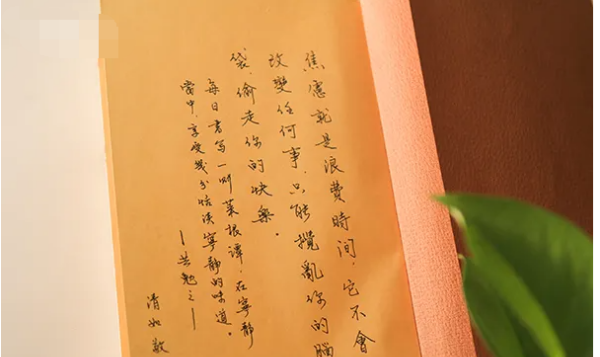 焦慮就是浪費時間，它不會
改變任何事，只能攪亂你的腦
袋，偷走你的快樂。
每日書寫一則菜根譚，在寧靜
當中，享受幾分恬淡寧靜的味道。
—共勉之—
清如敬